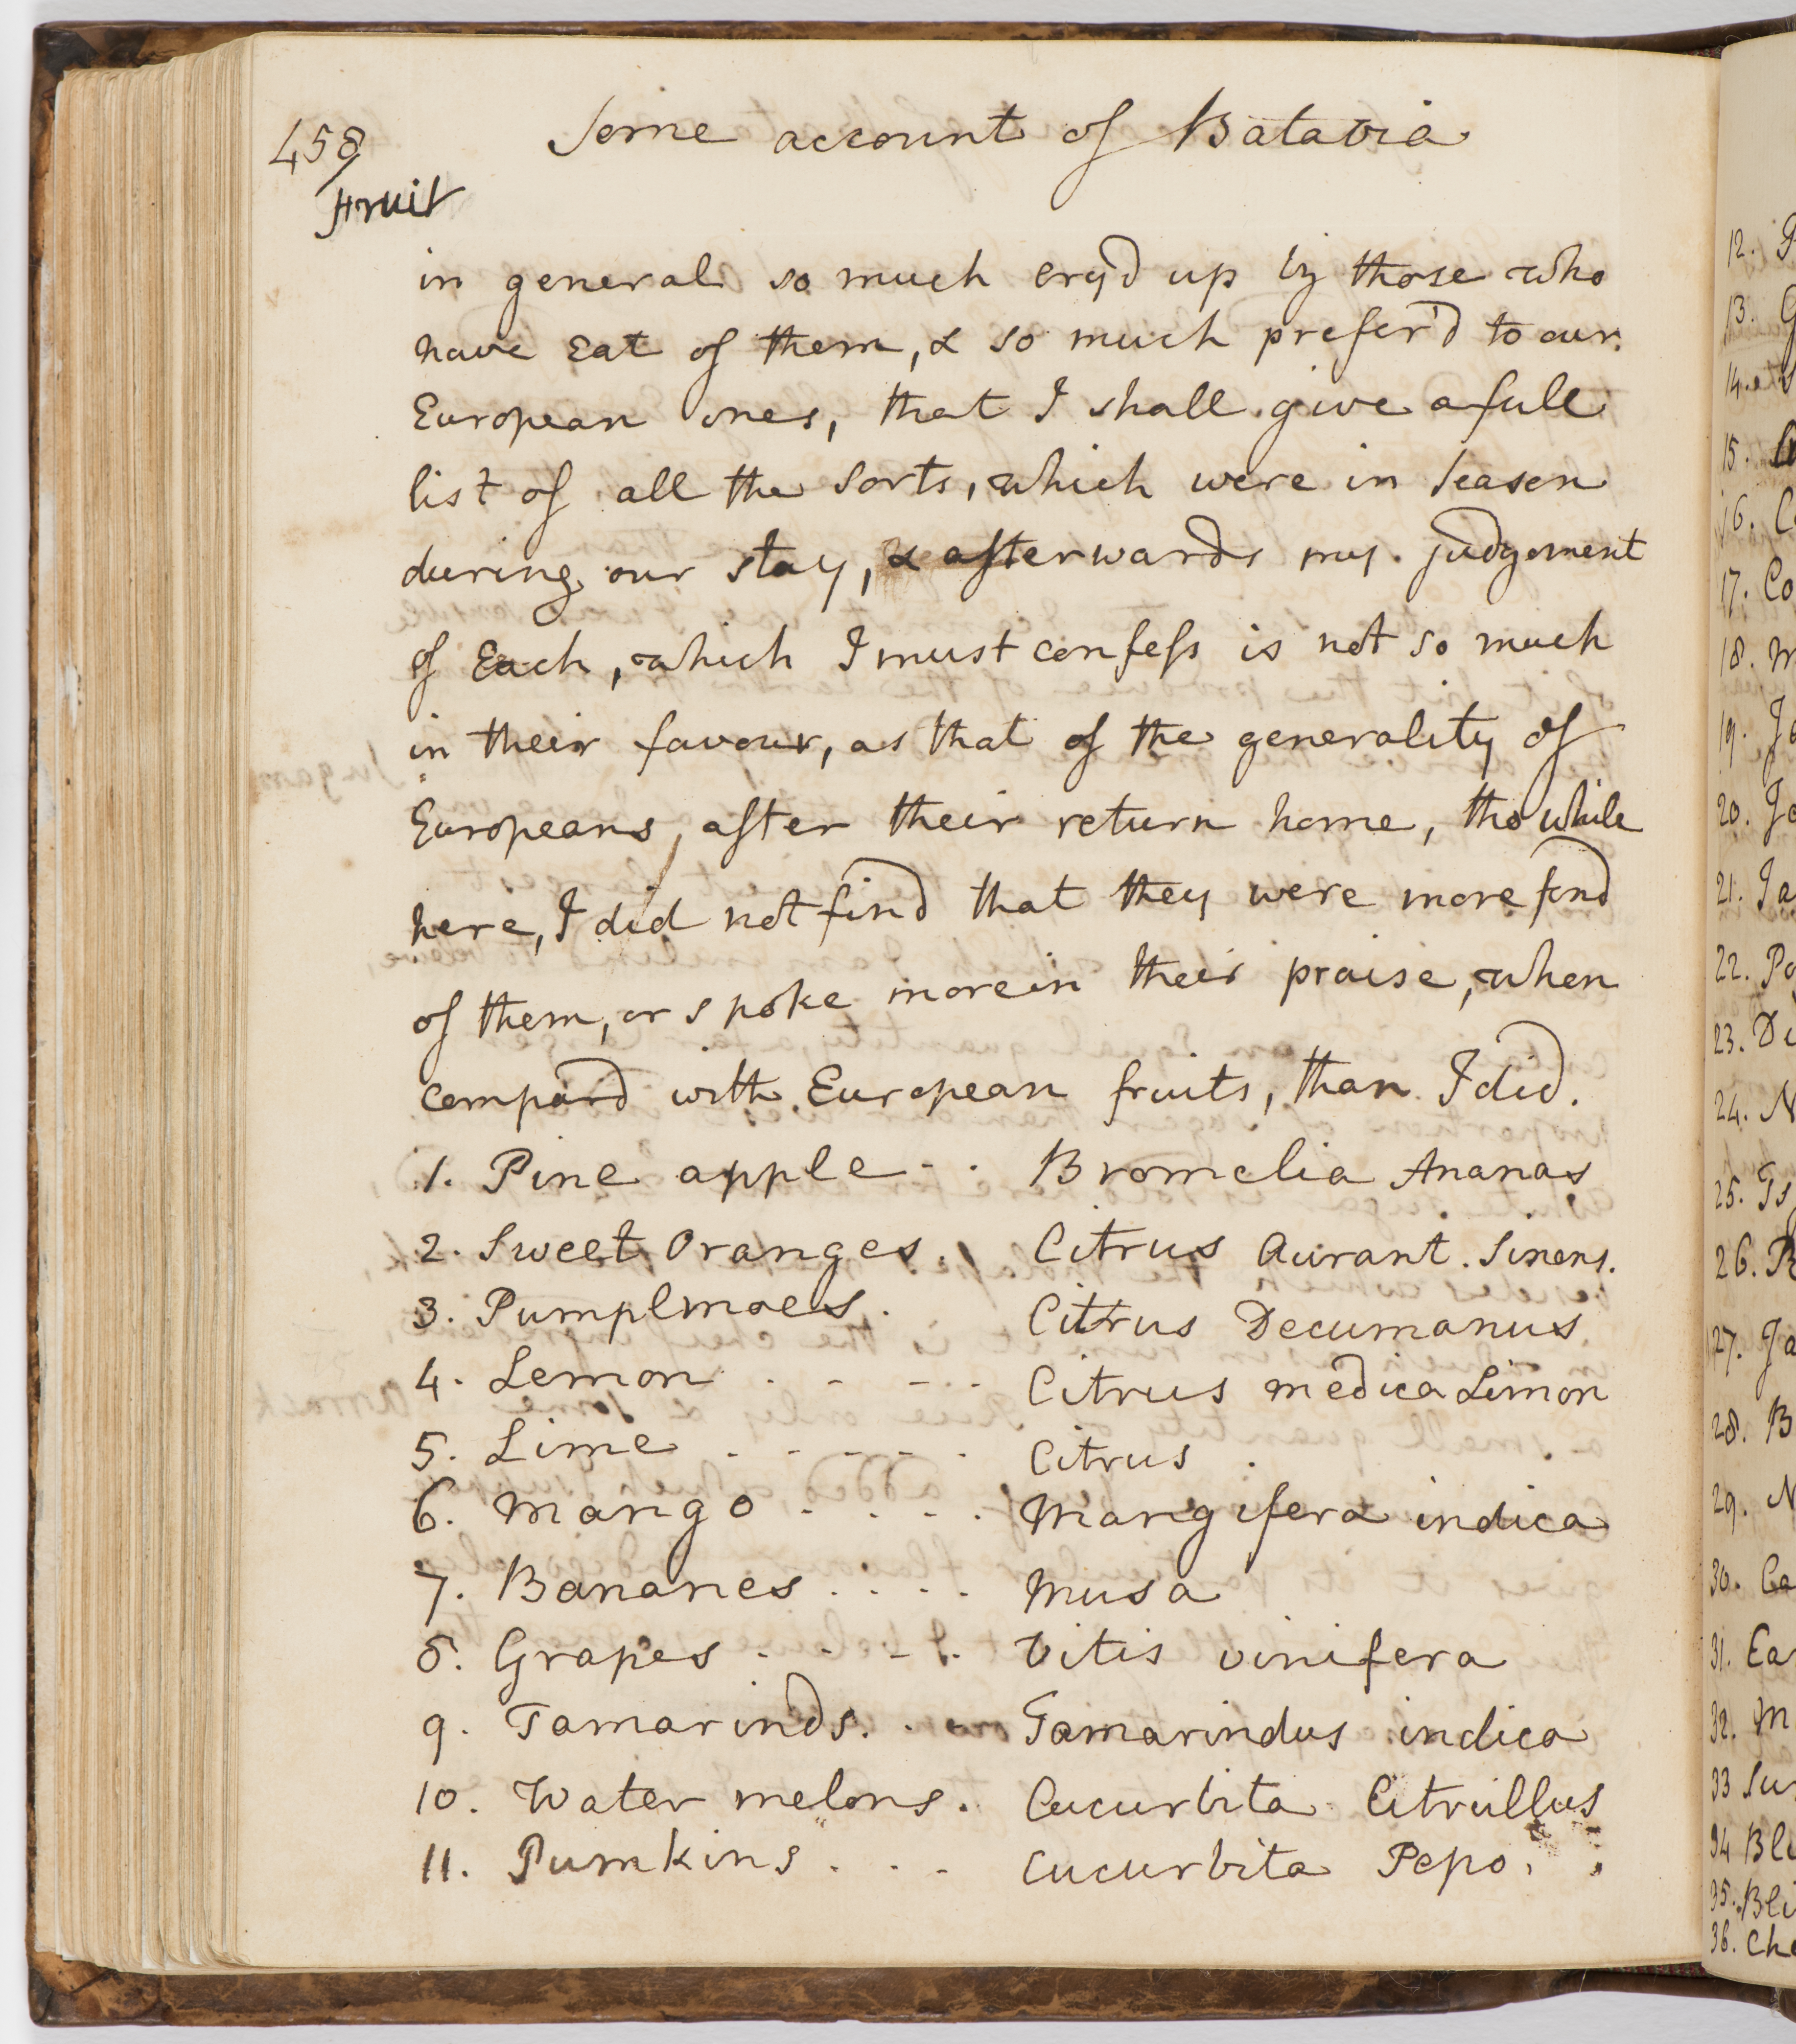 458
Some account of Batavia
Fruit
in general so much cry'd up by those who
have Eat of them, & so much prefer'd to our
European ones, that I shall give a full
list of all the Sorts, which were in Season
during our stay, & afterwards my judgement
of Each, which I must confess is not so much
in their favour, as that of the generality of
Europeans, after their return home, tho while
here, I did not find that they were more fond
of them, or spoke more in their praise, when
compard with European fruits, than I did.
1. Pine apple - . Bromelia Ananas
2. Sweet Oranges . Citrus Aurant. Sinens.
3. Pumplmoes . Citrus Decumanus
4. Lemon . - - - . Citrus medica Limon
5. Lime . - - - - . Citrus .
6. Mango - . . - . Mangifera indica
7. Bananes . . . . Musa
8. Grapes - - - . Vitis vinifera
9. Tamarinds. . - Tamarindus indica
10. Water melons . Cucurbita Citrullus
11. Pumkins . . - Cucurbita Pepo.
12. P
13. G
14.
15.
16. C
17. Co
18. M
19. Ja
20. Ja
21. Ja
22. Po
23. Di
24. N
25. Ts
26. R
27. Ja
28. B
29. N
30. Ca
31. Ea
32. M
33 Su
34 Bli
35. Bli
36. Che